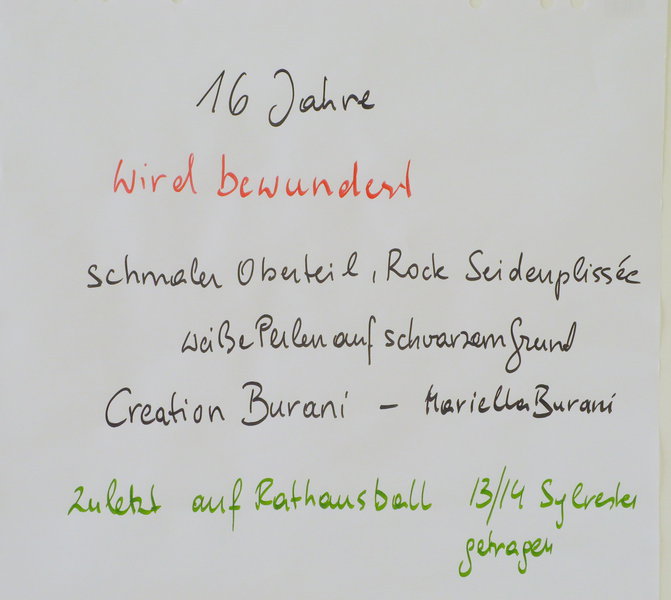 16 Jahre
wird bewundert
schmaler Oberteil, Rock Seidenplissée
weiße Perlen auf schwarzem Grund
Creation Burani – Mariella Burani
Zuletzt auf Rathausball 13/14 Sylvester
getragen